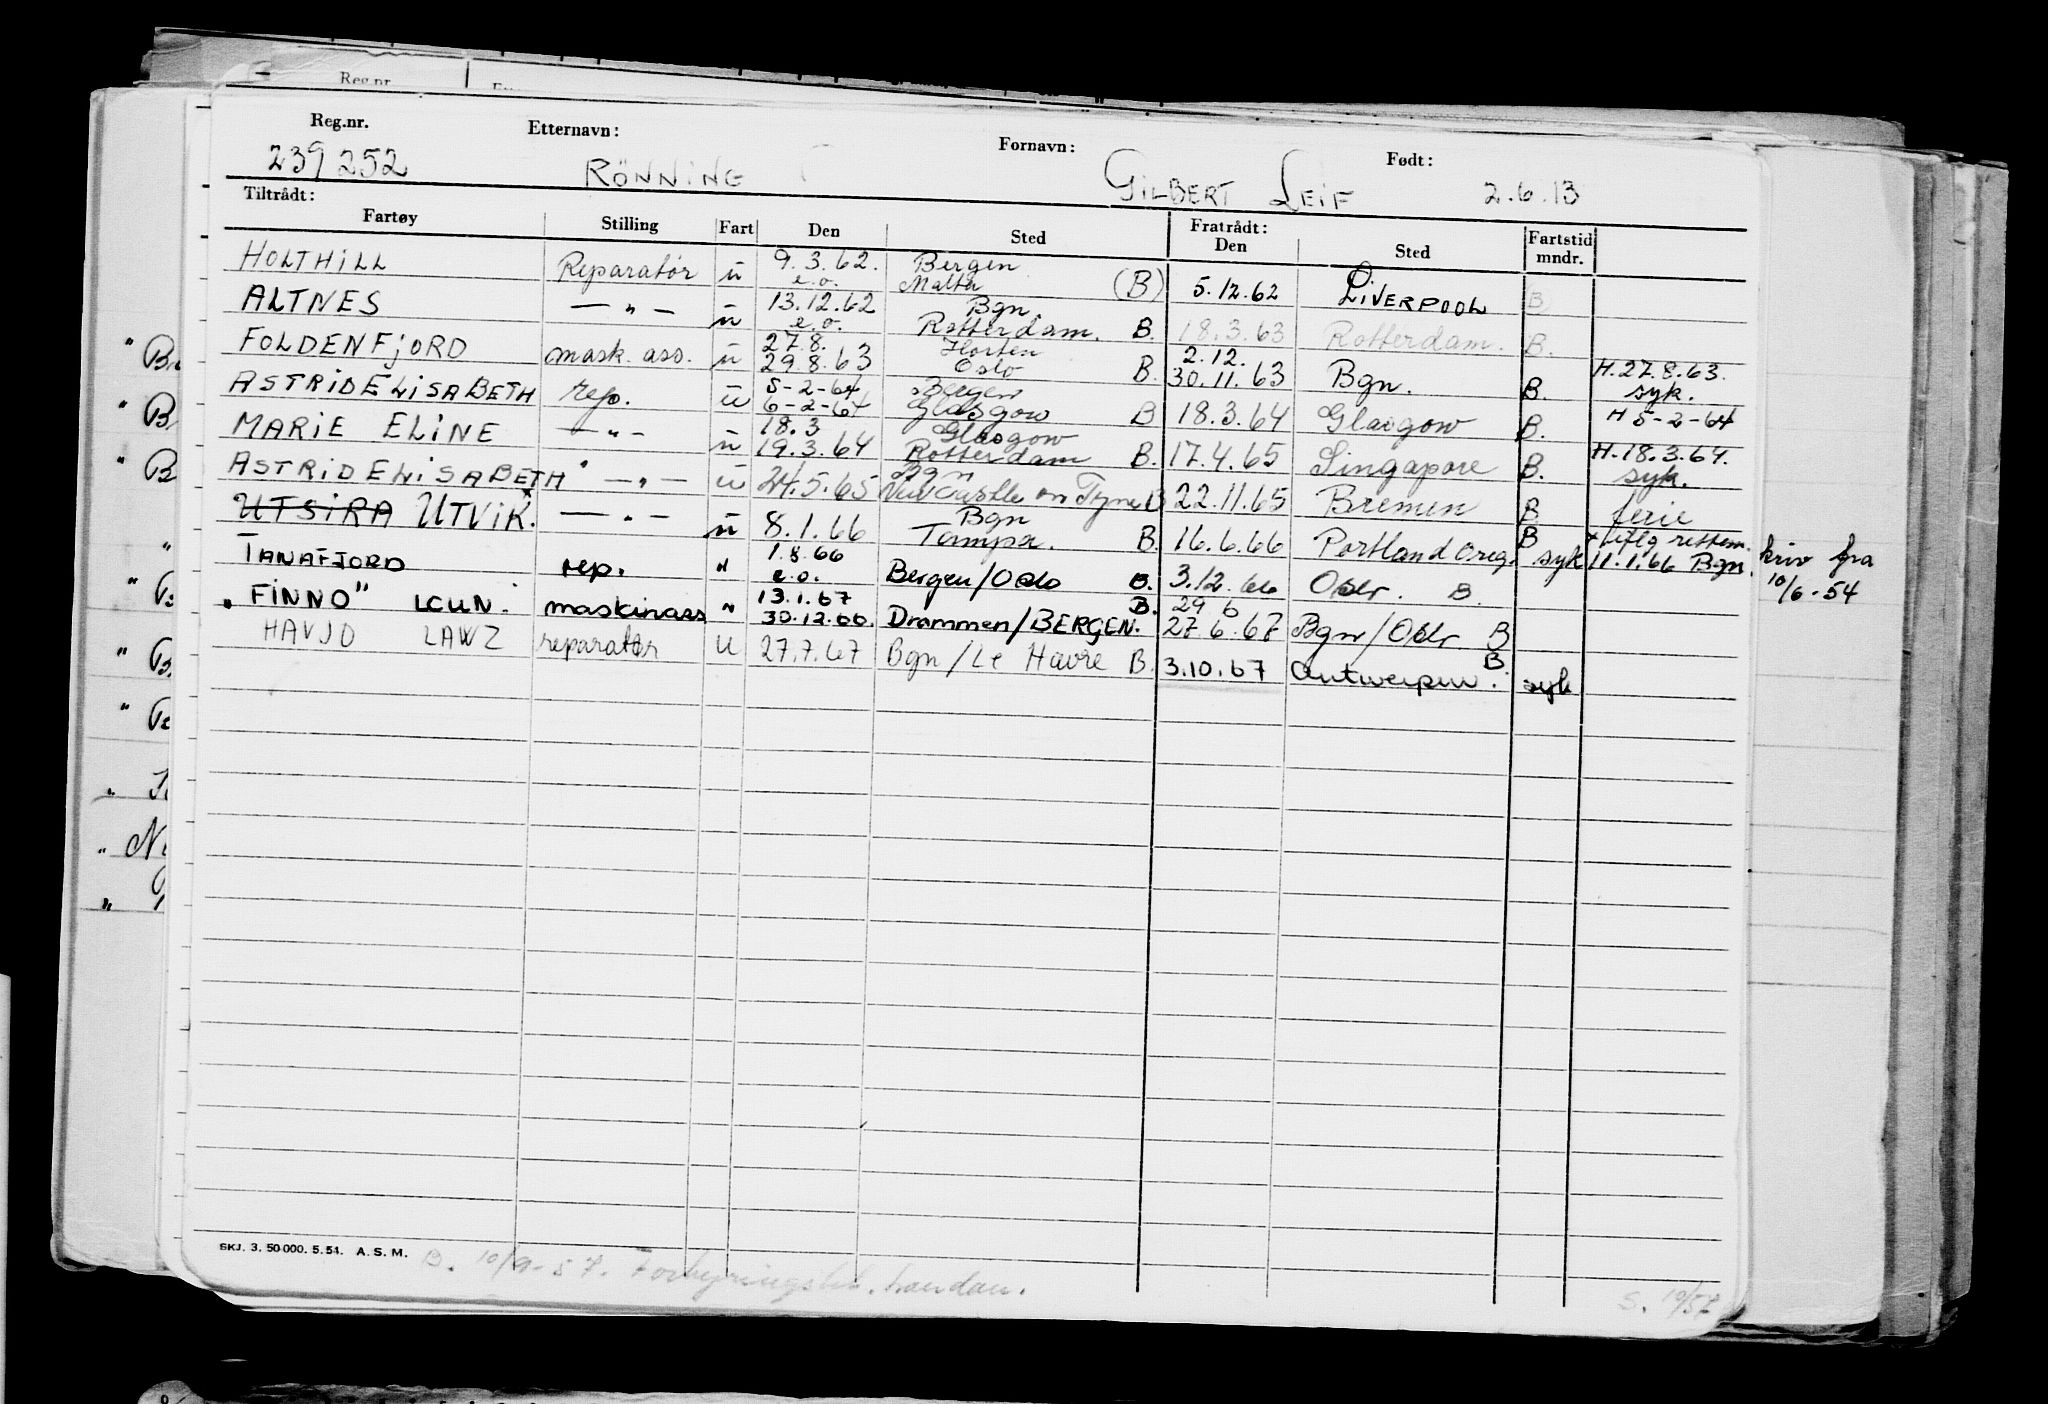 Reg.nr.
Reg.nr. Etternavn: Fornavn: Født:
239252 RÖNNING GILBERT LEIF 2.6.13
Tiltrådt: Fratrådt:
Fartøy Stilling Fart Den Sted Den Sted Fartstid mndr.
HOLTHILL Reparatør u 9.3.62. e.o. Bergen Malta (B) 5.12.62 LIVERPOOL B
ALTNES — " — u 13.12.62 e.o. Bgn. Rotterdam. B. 18.3.63 Rotterdam. B.
FOLDENFJORD mask. ass. u 27.8. 29.8.63 Horten Oslo B. 2.12. 30.11.63 Bgn. B. H.27.8.63. syk.
ASTRID ELISABETH rep. u 5-2-64 6-2-64 Bergen Glasgow B 18.3.64 Glasgow B. H 5-2-64
MARIE ELINE — " — u 18.3 19.3.64 Glasgow Rotterdam B. 17.4.65 Singapore B. H.18.3.64. syk.
ASTRID ELISABETH — " — u 24.5.65 Bgn New Castle on Tyne B 22.11.65 Bremen B ferie
UTSIRA UTVIK. — " — u 8.1.66 Bgn Tampa. B. 16.6.66 Portland Oreg. B syk 11.1.66 Bgn. skriv fra 10/6-54
TANAFJORD rep. " 1.8.66 e.o. Bergen/Oslo B. 3.12.66 Oslo. B.
"FINNO" LCUN. maskinass " 13.1.67 30.12.66. Drammen/BERGEN. B. 29 6 27.6.67 Bgn/Oslo B
HAVJO LAWZ reparatør U 27.7.67 Bgn/Le Havre B. 3.10.67 Antwerpen. B syk
SKJ. 3. 50 000. 5. 51. A. S. M.
B. 10/9-57.
S. 10/57